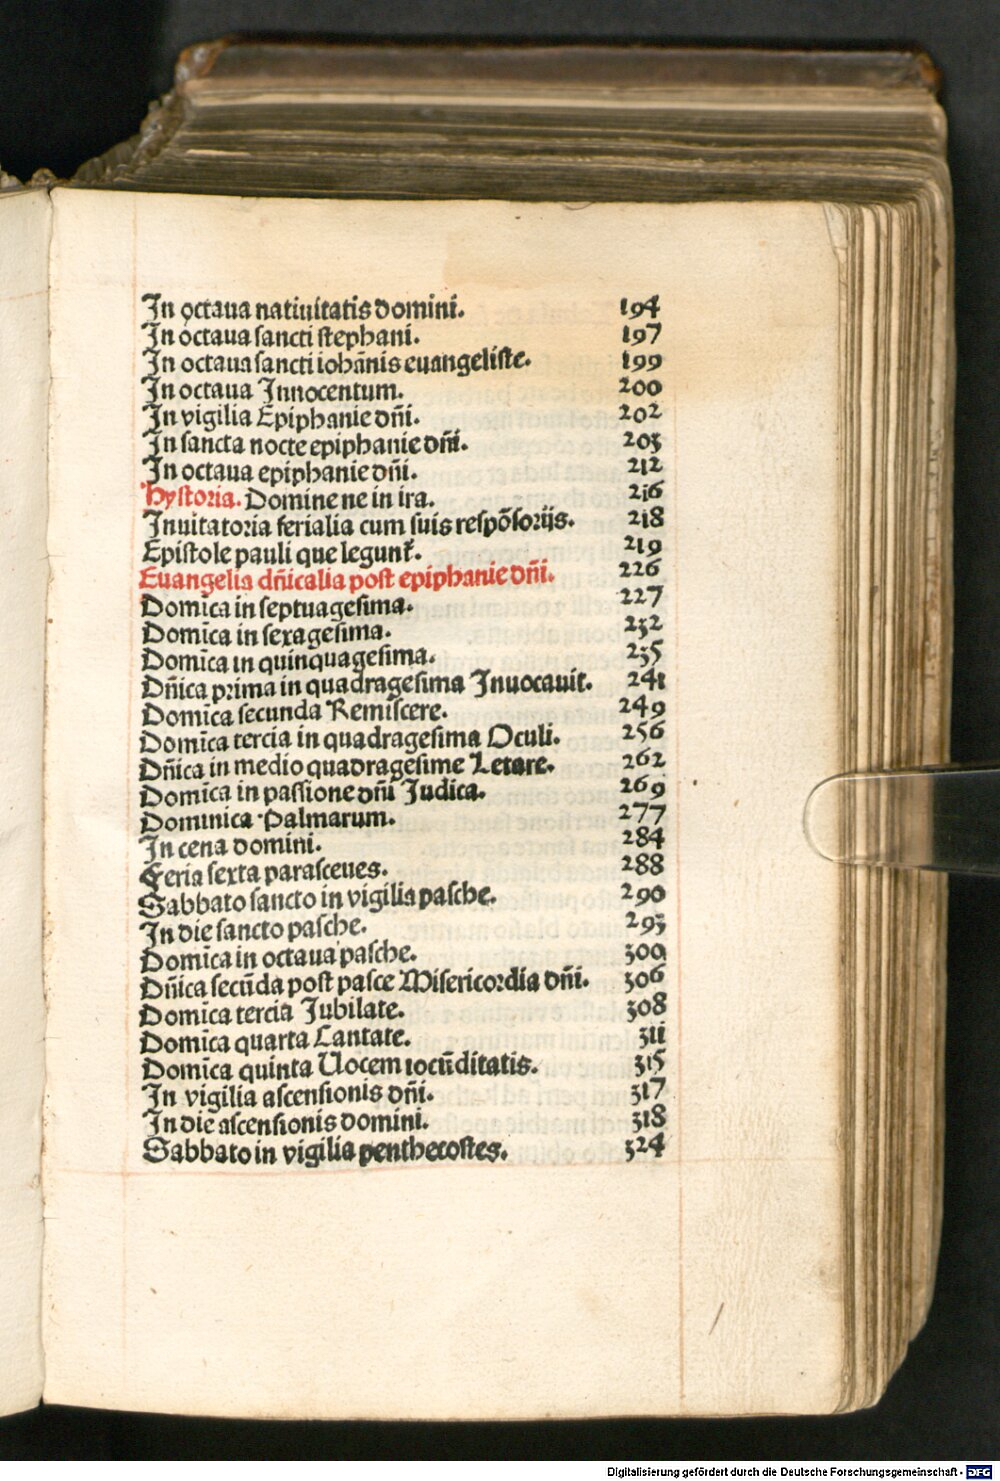 In octaua natiuitatis domini. 194
In octaua sancti stephani. 197
In octaua sancti iohānis euangeliste. 199
In octaua Innocentum. 200
In vigilia Epiphanie dn̄i. 202
In sancta nocte epiphanie dn̄i. 203
In octaua epiphanie dn̄i. 212
Hystoria. Domine ne in ira. 216
Inuitatoria ferialia cum suis respōsorijs. 218
Epistole pauli que legunt᷑. 219
Euangelia dn̄icalia post epiphanie dn̄i. 226
Domīca in septuagesima. 227
Domīca in sexagesima. 232
Domīca in quinquagesima. 235
Dn̄ica prima in quadragesima Inuocauit. 241
Domīca secunda Remiscere. 249
Domīca tercia in quadragesima Oculi. 256
Dn̄ica in medio quadragesime Letare. 262
Domīca in passione dn̄i Judica. 269
Dominica Palmarum. 277
In cena domini. 284
Feria sexta parasceues. 288
Sabbato sancto in vigilia pasche. 290
In die sancto pasche. 293
Domīca in octaua pasche. 300
Dn̄ica secūda post pasce Misericordia dn̄i. 306
Domīca tercia Jubilate. 308
Domīca quarta Cantate. 311
Domīca quinta Uocem iocūditatis. 315
In vigilia ascensionis dn̄i. 317
In die ascensionis domini. 318
Sabbato in vigilia penthecostes. 324
Digitalisierung gefördert durch die Deutsche Forschungsgemeinschaft - DFG